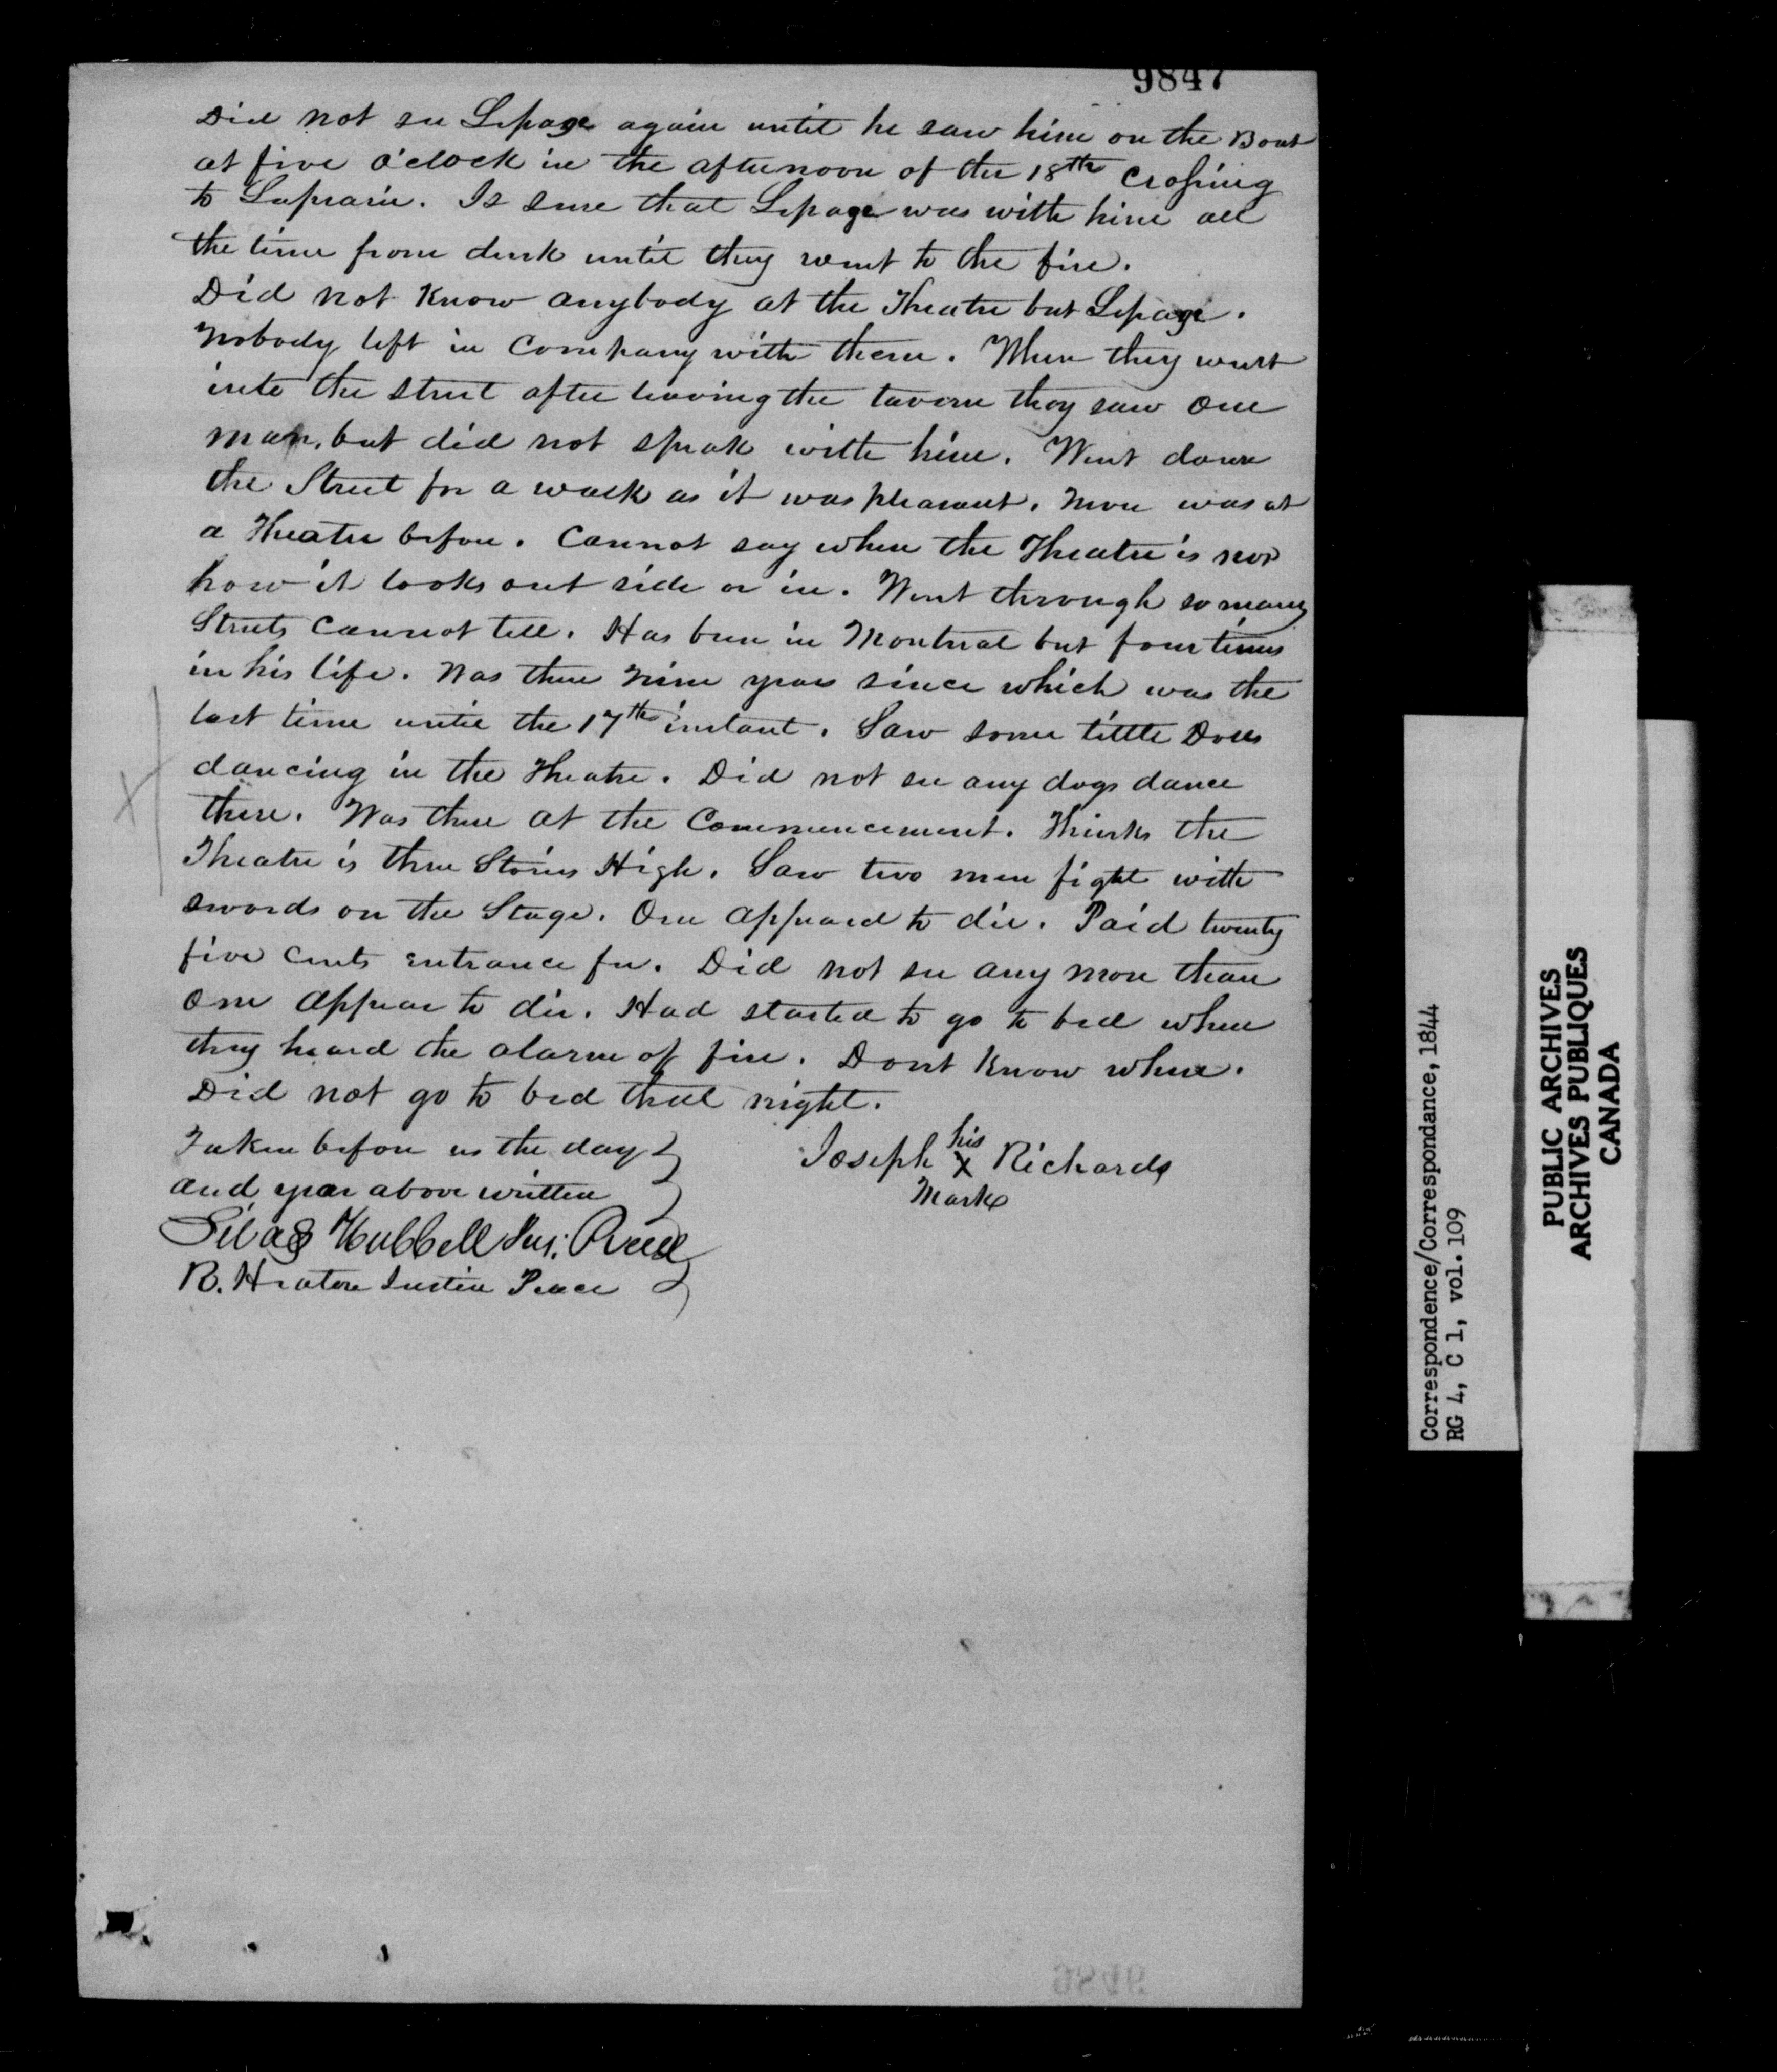 9847
Did not see Lepage again until he saw him on the Boat
at five o'clock in the afternoon of the 18th crossing
to Laprarie. Is sure that Lepage was with him all
the time from dusk until they went to the fire.
Did not Know anybody at the Theatre but Lepage.
Nobody left in Company with them. When they went
into the street after leaving the tavern they saw one
man, but did not speak with him. Went down
the Street for a walk as it was pleasant. Never was at
a Theatre before. Cannot say where the Theatre is nor
how it looks out side or in. Went through so many
Streets cannot tell. Has been in Montreal but four times
in his life. Was there nine years since which was the
last time until the 17th instant. Saw some little Dolls
dancing in the Theatre. Did not see any dogs dance
there. Was there at the Commencement. Thinks the
Theatre is three Stories High. Saw two men fight with
swords on the Stage. One appeared to die. Paid twenty
five cents entrance fee. Did not see any more than
one appear to die. Had started to go to bed when
they heard the alarm of fire. Dont Know where.
Did not go to bed that night.
Taken before us the day
and year above written
Joseph his X Richards
Mark
Silas Hubbell Jus: Peace
R. Heaton Justice Peace
9846
Correspondence/Correspondance, 1844
RG 4, C 1, vol. 109
PUBLIC ARCHIVES
ARCHIVES PUBLIQUES
CANADA